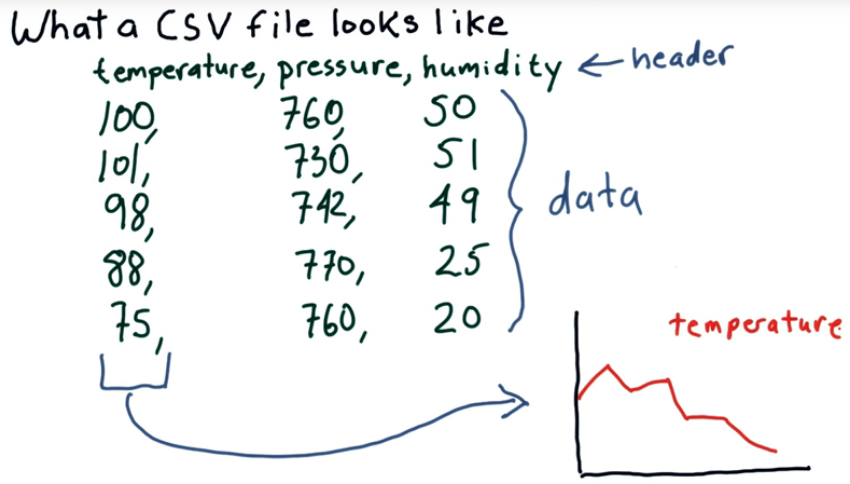 What a CSV file looks like
temperature, pressure, humidity ← header
100, 760, 50
101, 730, 51
98, 742, 49
data
88, 770, 25
75, 760, 20
temperature